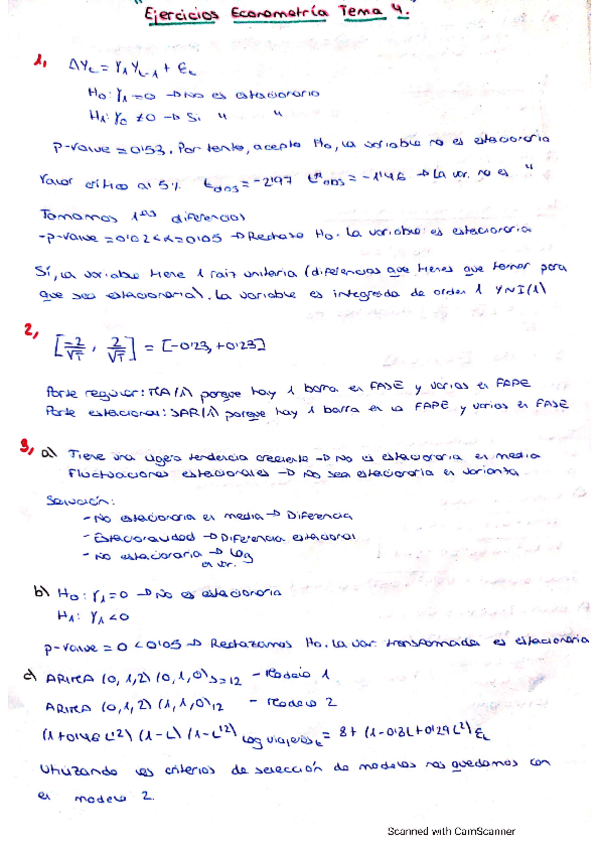 Ejercicios Econometría Tema 4.
1, ΔYt = γ1 Yt-1 + Et
H0: γ1 = 0 → No es estacionario
H1: γ0 ≠ 0 → Si " "
p-value = 0'53. Por tanto, acepto H0, la variable no es estacionaria
Valor crítico al 5% = -2'97 = -1'46 → La var. no es "
Tomamos 1ras diferencias
- p-value = 0'02 < α = 0'05 → Rechazo H0. La variable es estacionaria
Sí, la variable tiene 1 raiz unitaria (diferencias que tienes que tomar para
que sea estacionaria). La variable es integrada de orden 1 Y~I(1)
2,
[-2/√T, 2/√T] = [-0'23, +0'23]
Parte regular: MA(1) porque hay 1 barra en FASE y varias en FAPE
Parte estacional: SAR(1) porque hay 1 barra en la FAPE y varias en FASE
3, a) Tiene una ligera tendencia creciente → No es estacionaria en media
Fluctuaciones estacionales → No sea estacionaria en varianza
Solución:
- No estacionaria en media → Diferencia
- Estacionalidad → Diferencia estacional
- No estacionaria en var. → Log
b) H0: γ1 = 0 → No es estacionaria
H1: γ1 < 0
p-value = 0 < 0'05 → Rechazamos H0. La var. transformada es estacionaria
c) ARIMA (0,1,2) (0,1,0)s=12 - Modelo 1
ARIMA (0,1,2) (1,1,0)12 - Modelo 2
(1+0'46 L^12) (1-L) (1-L^12) log viajeros t = 8 + (1-0'3L+0'29L^2) Et
Utilizando los criterios de selección de modelos nos quedamos con
el modelo 2.
Scanned with CamScanner